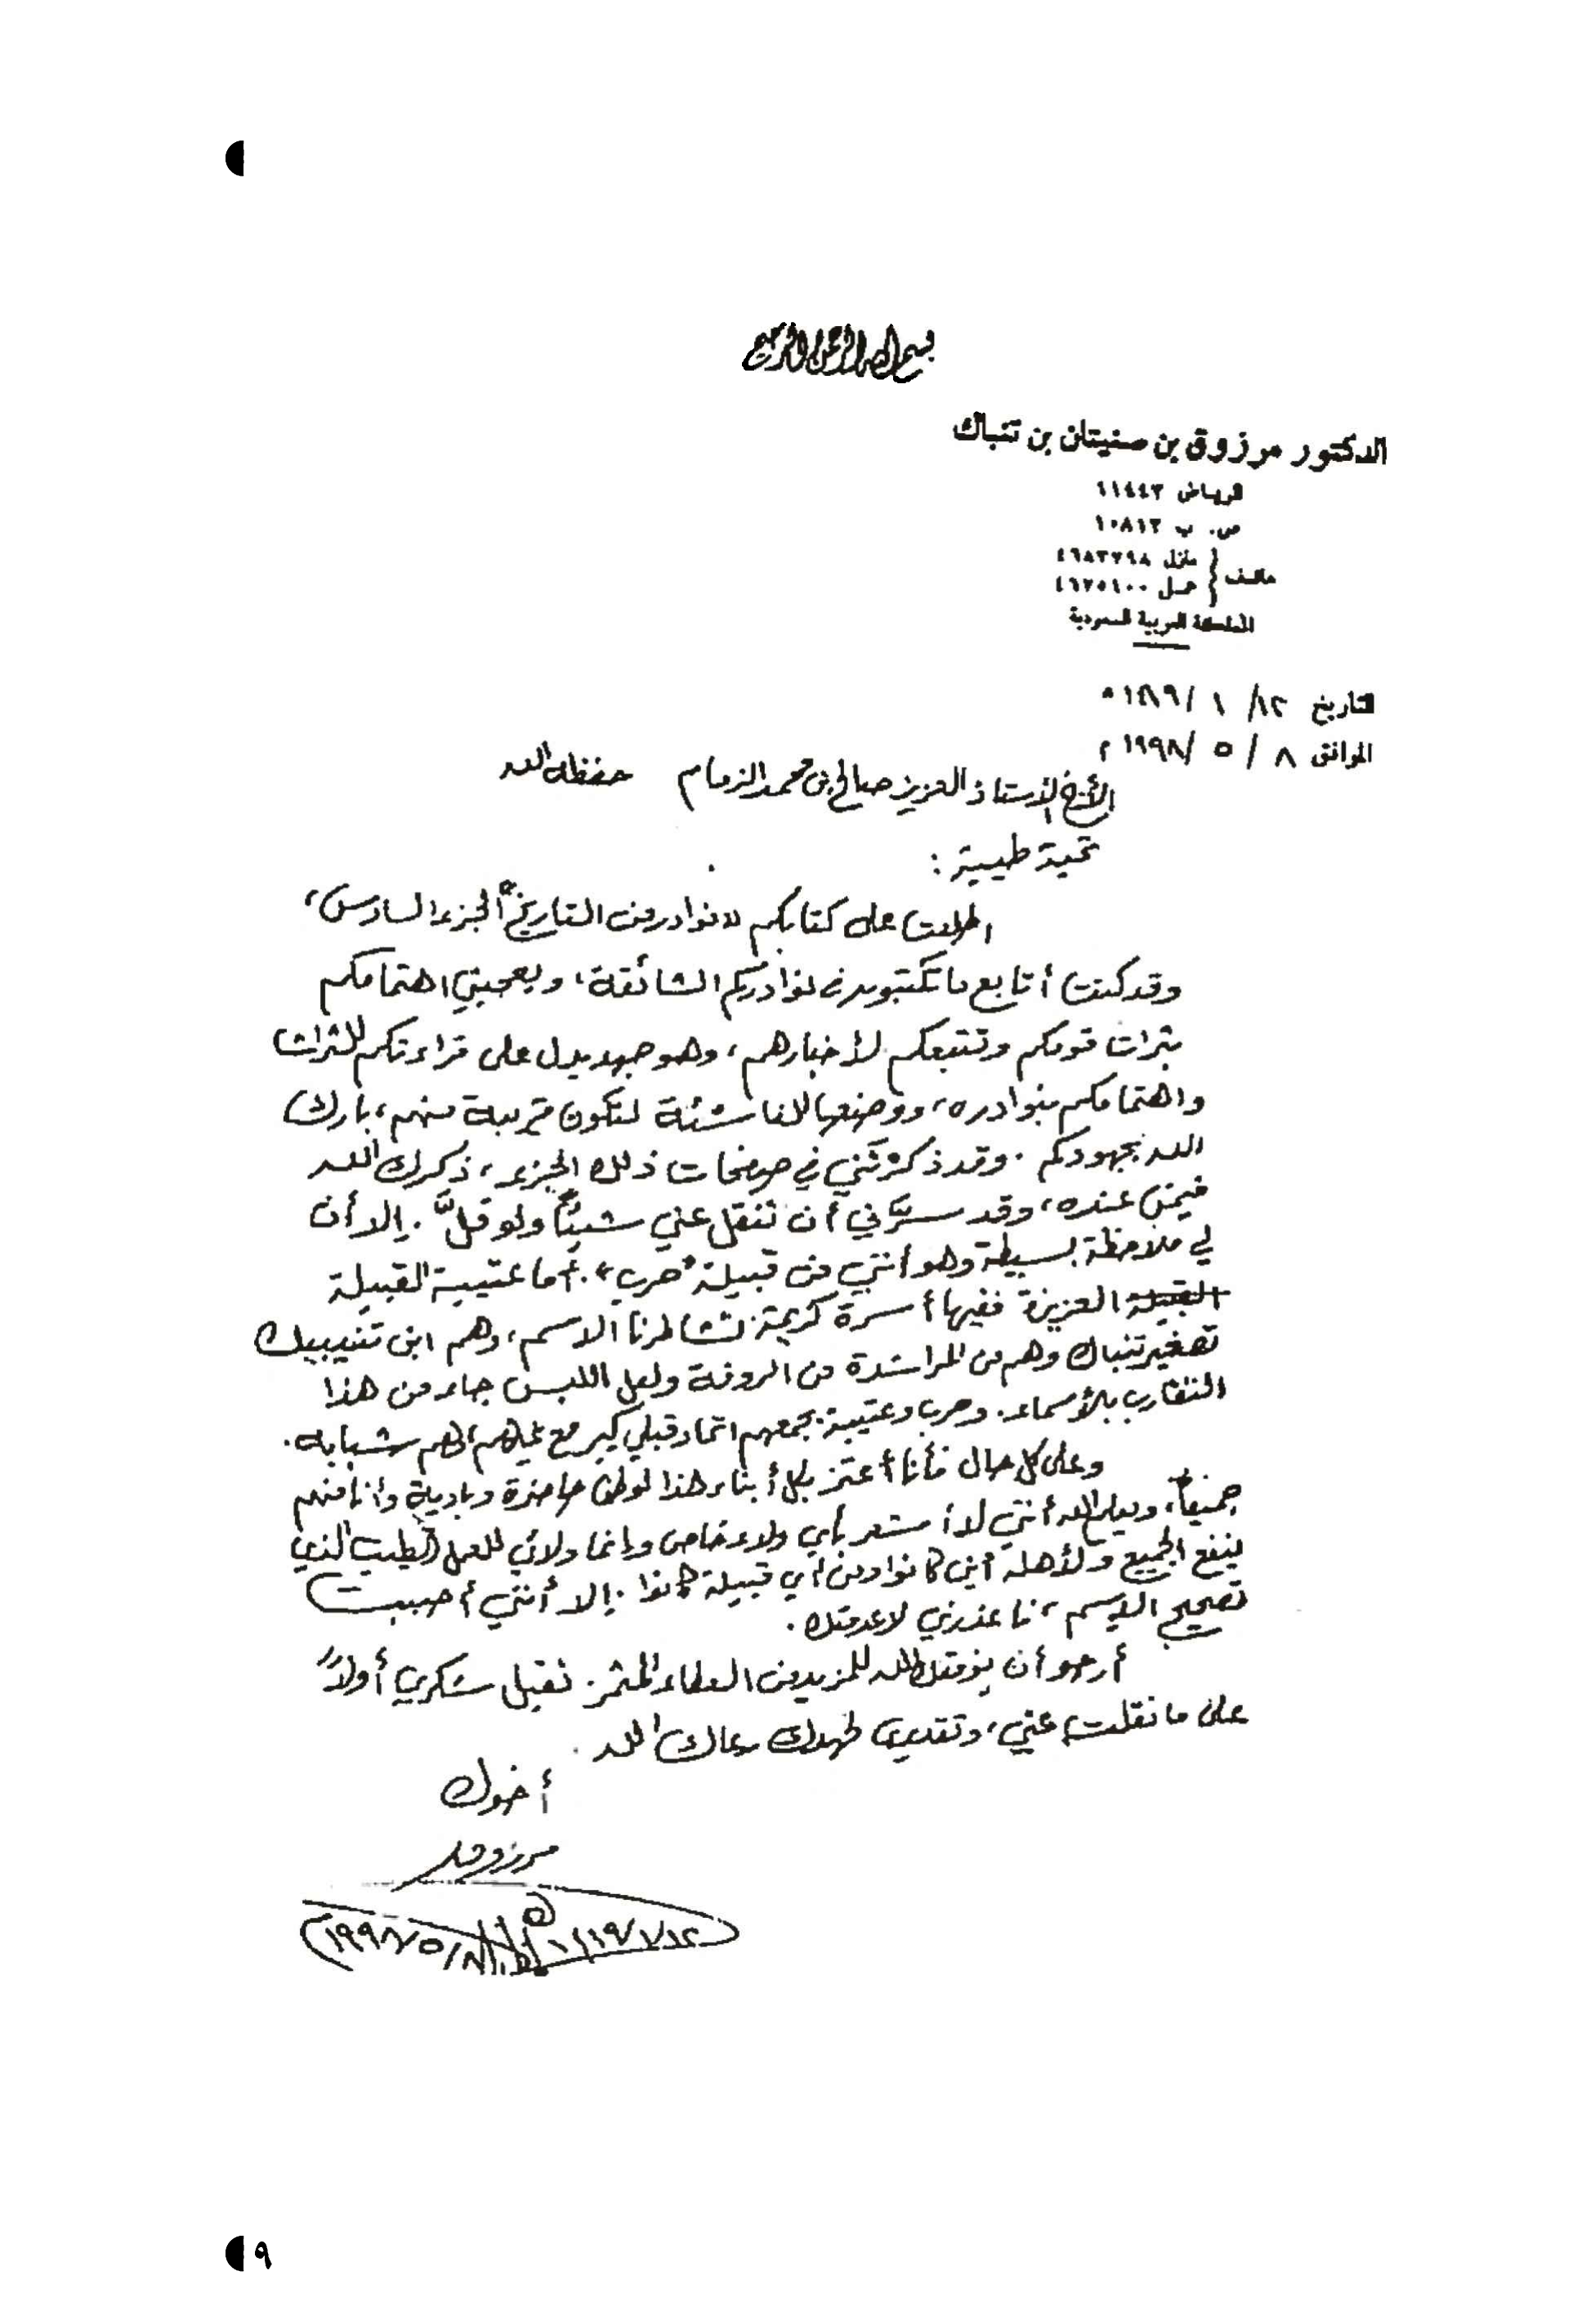 بسم الله الرحمن الرحيم
الدكتور مرزوق بن صنيتان بن تنباك
الرياض ١١٤٤٣
ص. ب ١٠٨١٢
هاتف { منزل ٤٦٨٣٢٩٨
عمل ٤٦٧٥١٠٠
المملكة العربية السعودية
التاريخ ١٢/ ١ /١٤١٩ هـ
الموافق ٨ / ٥ /١٩٩٨ م
الأخ الأستاذ العزيز صالح بن محمد الزمام حفظه الله
تحية طيبة :
اطلعت على كتابكم "نوادر من التاريخ" الجزء السادس،
وقد كنت أتابع ما تكتبون من نوادركم الشائقة، ويعجبني اهتمامكم
بتراث قومكم وتتبعكم لأخبارهم، وهو جهد يدل على قراءتكم للتراث
واهتمامكم بنوادره، ووضعها للناشئة لتكون قريبة منهم، بارك
الله بجهودكم. وقد ذكرْتَني في صفحات ذلك الجزء، ذكرك الله
فيمن عنده، وقد سرَّني أن تنقل عني شيئاً ولو قلَّ. إلا أن
لي ملاحظة بسيطة وهو أنني من قبيلة "حرب". أما عتيبة القبيلة
القبيلة العزيزة ففيها أسرة كريمة تشاطرنا الاسم، وهم ابن تنيبيك
تصغير تنباك وهم من المراشدة من الروقة ولعل اللبس جاء من هذا
التقارب بالأسماء. وحرب وعتيبة يجمعهم اتحاد قبلي كبير مع غيرهم هم شبابه.
وعلى كل حال فأنا أعتز بكل أبناء هذا الوطن حاضرة وبادية وأنا منهم
جميعاً، ويعلم الله أنني لا أستشعر بأي ولاء خاص وإنما ولائي للعمل الطيب الذي
ينفع الجميع ولأهله أين كانوا ومن أي قبيلة كانوا. إلا أنني أحببت
تصحيح الاسم، فاعذرني لا عدمتك.
أرجو أن يوفقك الله للمزيد من العطاء المثمر. تقبل شكري أولاً
على ما نقلت عني، وتقديري لجهدك رعاك الله.
أخوك
مرزوق
١٩٩٨/٥/٨م
٩